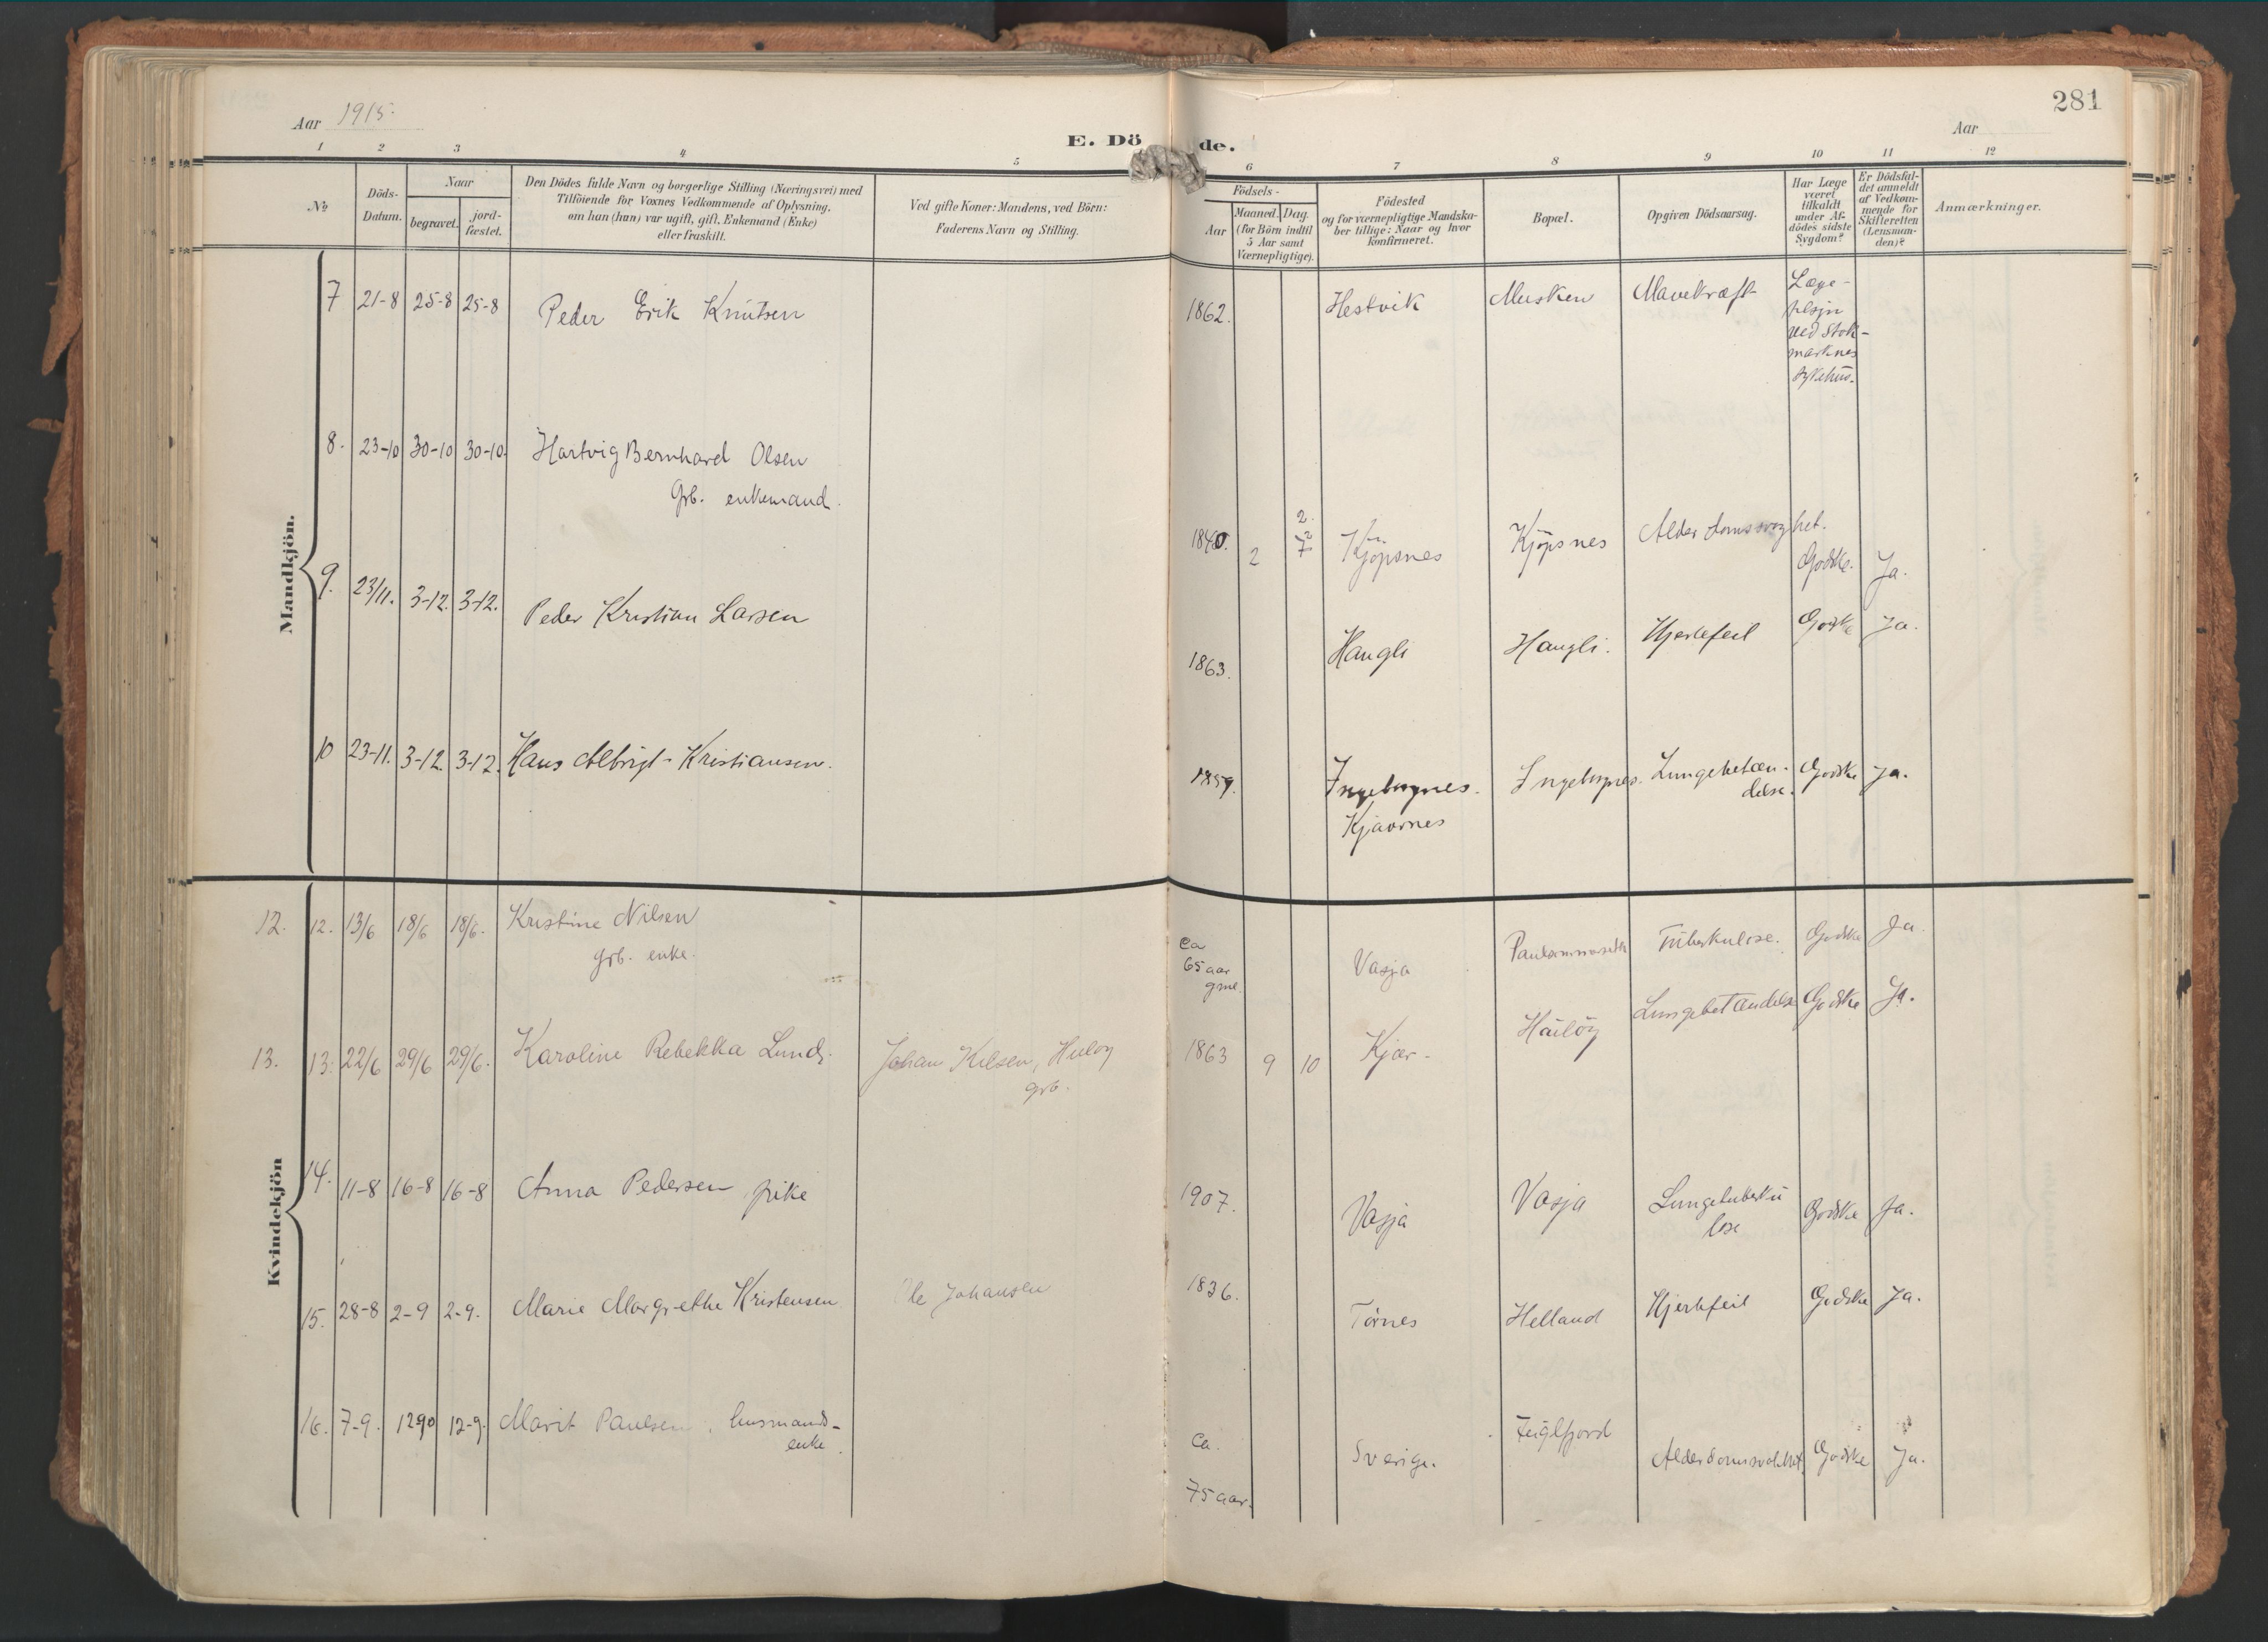 281
Aar 1915.
Aar
E. Dö de.
1 2 3 4 5 6 7 8 9 10 11 12
No
Döds-
Datum.
Naar
begravet.
jord-
fæstet.
Den Dödes fulde Navn og borgerlige Stilling (Næringsvei) med
Tilföiende for Voxnes Vedkommende af Oplysning,
om han (hun) var ugift, gift, Enkemand (Enke)
eller fraskilt.
Ved gifte Koner: Mandens, ved Börn:
Faderens Navn og Stilling.
Födsels-
Aar
Maaned. Dag.
(for Börn indtil
5 Aar samt
Værnepligtige).
Födested
og for værnepligtige Mandska-
ber tillige: Naar og hvor
konfirmeret.
Bopæl.
Opgiven Dödsaarsag.
Har Læge
været
tilkaldt
under Af-
dödes sidste
Sygdom?
Er Dödsfal-
det anmeldt
af Vedkom-
mende for
Skifteretten
(Lensman-
den)?
Anmærkninger.
Mandkjön.
7 21-8 25-8 25-8 Peder Erik Knutsen 1862. Hestvik Musken Mavekræft Læge-
helsjn
ved Stok-
marknes
sykehus.
8. 23-10 30-10 30-10. Hartvig Bernhard Olsen
Grb. enkemand.
1840. 2 2. Kjöpsnes Kjöpsnes Alderdomssvaghet.
Godske. Ja.
9. 23/11. 3-12. 3-12. Peder Kristian Larsen
1863. Haugli Haugli. Hjertefeil Godske Ja.
10 23-11. 3-12. 3-12. Hans Albrigt Kristiansen.
1859. Ingeborgnes. Ingeborgnes. Lungebetæn-
delse. Godske Ja.
Kjaornes
Kvindekjön
12. 12. 13/6 18/6 18/6. Kristine Nilsen
grb. enke.
Ca
65 aar
gml. Vasja Tuberkulose. Godske Ja.
13. 13. 22/6 29/6 29/6. Karoline Rebekka Lund. Johan Kilsen, Huloy
grb.
1863 9 10 Kjær. Hailöy Lungebetændelse Godske Ja.
14. 11-8 16-8 16-8 Anna Pedersen pike
1907. Vasja Vasja Lungetuberku
lose Godske Ja.
15. 28-8 2-9 2-9. Marie Margrethe Kristensen Ole Johansen
1836. Törnes Helland Hjertefeil Godske Ja.
16. 7-9. 1290 12-9. Marit Paulsen. husmands-
enke.
Ca.
75 aar. Sverige. Fuglfjord Alderdomssvakhet. Godske Ja.